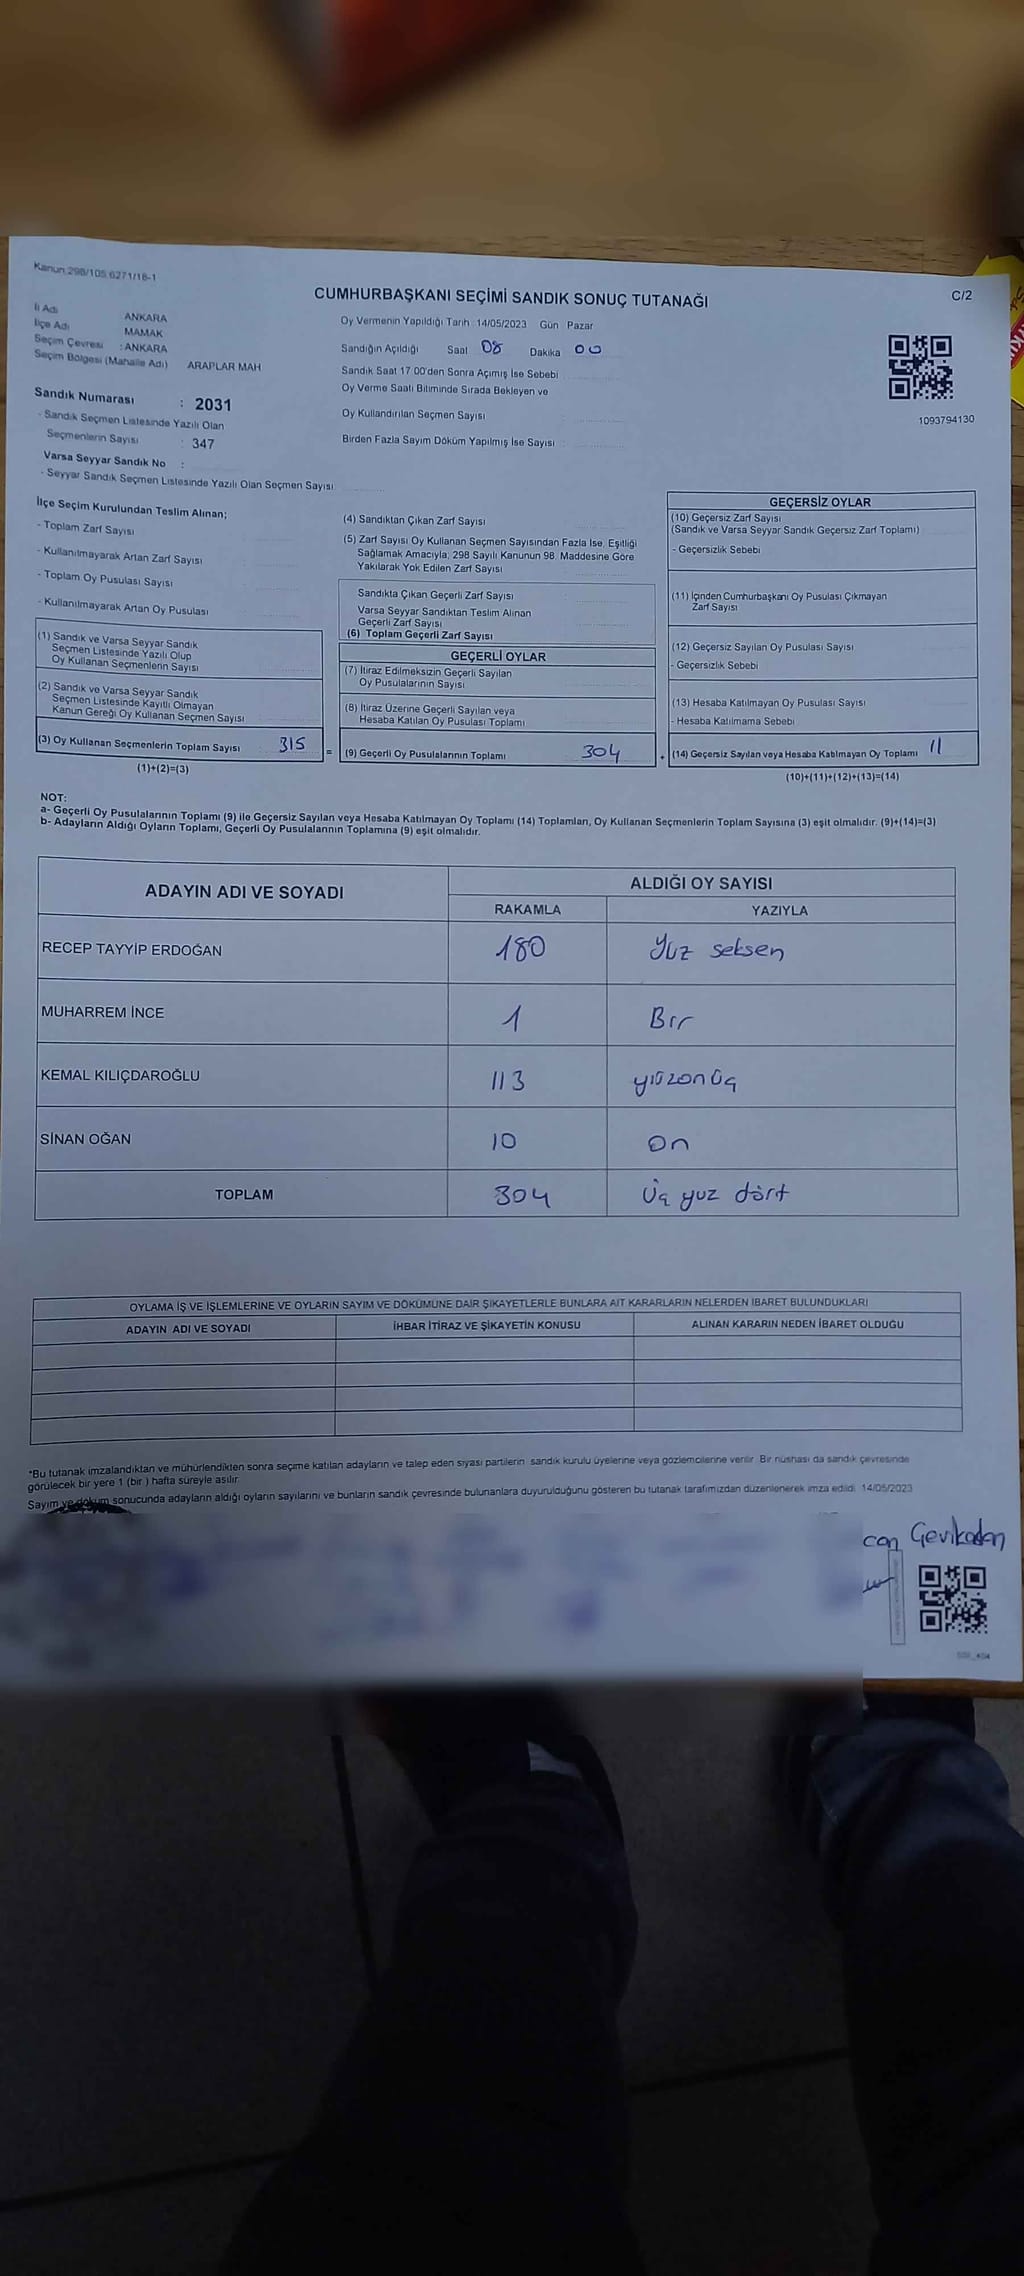 Kanun:298/105,6271/18-1
C/2
CUMHURBAŞKANI SEÇİMİ SANDIK SONUÇ TUTANAĞI
İl Adı ANKARA
İlçe Adı MAMAK
Seçim Çevresi : ANKARA
Seçim Bölgesi (Mahalle Adı) ARAPLAR MAH
Oy Vermenin Yapıldığı Tarih 14/05/2023 Gün Pazar
Sandığın Açıldığı Saat 08 Dakika 00
Sandık Saat 17 00'den Sonra Açımış İse Sebebi
Oy Verme Saati Bitiminde Sırada Bekleyen ve
Oy Kullandırılan Seçmen Sayısı
Birden Fazla Sayım Döküm Yapılmış İse Sayısı :
1093794130
Sandık Numarası : 2031
- Sandık Seçmen Listesinde Yazılı Olan
Seçmenlerin Sayısı : 347
Varsa Seyyar Sandık No :
- Seyyar Sandık Seçmen Listesinde Yazılı Olan Seçmen Sayısı
İlçe Seçim Kurulundan Teslim Alınan;
- Toplam Zarf Sayısı
- Kullanılmayarak Artan Zarf Sayısı
- Toplam Oy Pusulası Sayısı
- Kullanılmayarak Artan Oy Pusulası
(1) Sandık ve Varsa Seyyar Sandık
Seçmen Listesinde Yazılı Olup
Oy Kullanan Seçmenlerin Sayısı
(2) Sandık ve Varsa Seyyar Sandık
Seçmen Listesinde Kayıtlı Olmayan
Kanun Gereği Oy Kullanan Seçmen Sayısı
(3) Oy Kullanan Seçmenlerin Toplam Sayısı 315
(1)+(2)=(3)
=
(4) Sandıktan Çıkan Zarf Sayısı
(5) Zarf Sayısı Oy Kullanan Seçmen Sayısından Fazla İse, Eşitliği
Sağlamak Amacıyla, 298 Sayılı Kanunun 98. Maddesine Göre
Yakılarak Yok Edilen Zarf Sayısı
Sandıkta Çıkan Geçerli Zarf Sayısı
Varsa Seyyar Sandıktan Teslim Alınan
Geçerli Zarf Sayısı
(6) Toplam Geçerli Zarf Sayısı
GEÇERLİ OYLAR
(7) İtiraz Edilmeksizin Geçerli Sayılan
Oy Pusulalarının Sayısı
(8) İtiraz Üzerine Geçerli Sayılan veya
Hesaba Katılan Oy Pusulası Toplamı
(9) Geçerli Oy Pusulalarının Toplamı 304
+
GEÇERSİZ OYLAR
(10) Geçersiz Zarf Sayısı
(Sandık ve Varsa Seyyar Sandık Geçersiz Zarf Toplamı)
- Geçersizlik Sebebi
(11) İçinden Cumhurbaşkanı Oy Pusulası Çıkmayan
Zarf Sayısı
(12) Geçersiz Sayılan Oy Pusulası Sayısı
- Geçersizlik Sebebi
(13) Hesaba Katılmayan Oy Pusulası Sayısı
- Hesaba Katılmama Sebebi
(14) Geçersiz Sayılan veya Hesaba Katılmayan Oy Toplamı 11
(10)+(11)+(12)+(13)=(14)
NOT:
a- Geçerli Oy Pusulalarının Toplamı (9) ile Geçersiz Sayılan veya Hesaba Katılmayan Oy Toplamı (14) Toplamları, Oy Kullanan Seçmenlerin Toplam Sayısına (3) eşit olmalıdır. (9)+(14)=(3)
b- Adayların Aldığı Oyların Toplamı, Geçerli Oy Pusulalarının Toplamına (9) eşit olmalıdır.
ADAYIN ADI VE SOYADI ALDIĞI OY SAYISI
RAKAMLA YAZIYLA
RECEP TAYYİP ERDOĞAN 180 Yüz seksen
MUHARREM İNCE 1 Bir
KEMAL KILIÇDAROĞLU 113 yüzonüç
SİNAN OĞAN 10 on
TOPLAM 304 Üç yüz dört
OYLAMA İŞ VE İŞLEMLERİNE VE OYLARIN SAYIM VE DÖKÜMÜNE DAİR ŞİKAYETLERLE BUNLARA AİT KARARLARIN NELERDEN İBARET BULUNDUKLARI
ADAYIN ADI VE SOYADI İHBAR İTİRAZ VE ŞİKAYETİN KONUSU ALINAN KARARIN NEDEN İBARET OLDUĞU
*Bu tutanak imzalandıktan ve mühürlendikten sonra seçime katılan adayların ve talep eden siyasi partilerin sandık kurulu üyelerine veya gözlemcilerine verilir. Bir nüshası da sandık çevresinde
görülecek bir yere 1 (bir ) hafta süreyle asılır.
Sayım ve döküm sonucunda adayların aldığı oyların sayılarını ve bunların sandık çevresinde bulunanlara duyurulduğunu gösteren bu tutanak tarafımızdan düzenlenerek imza edildi. 14/05/2023